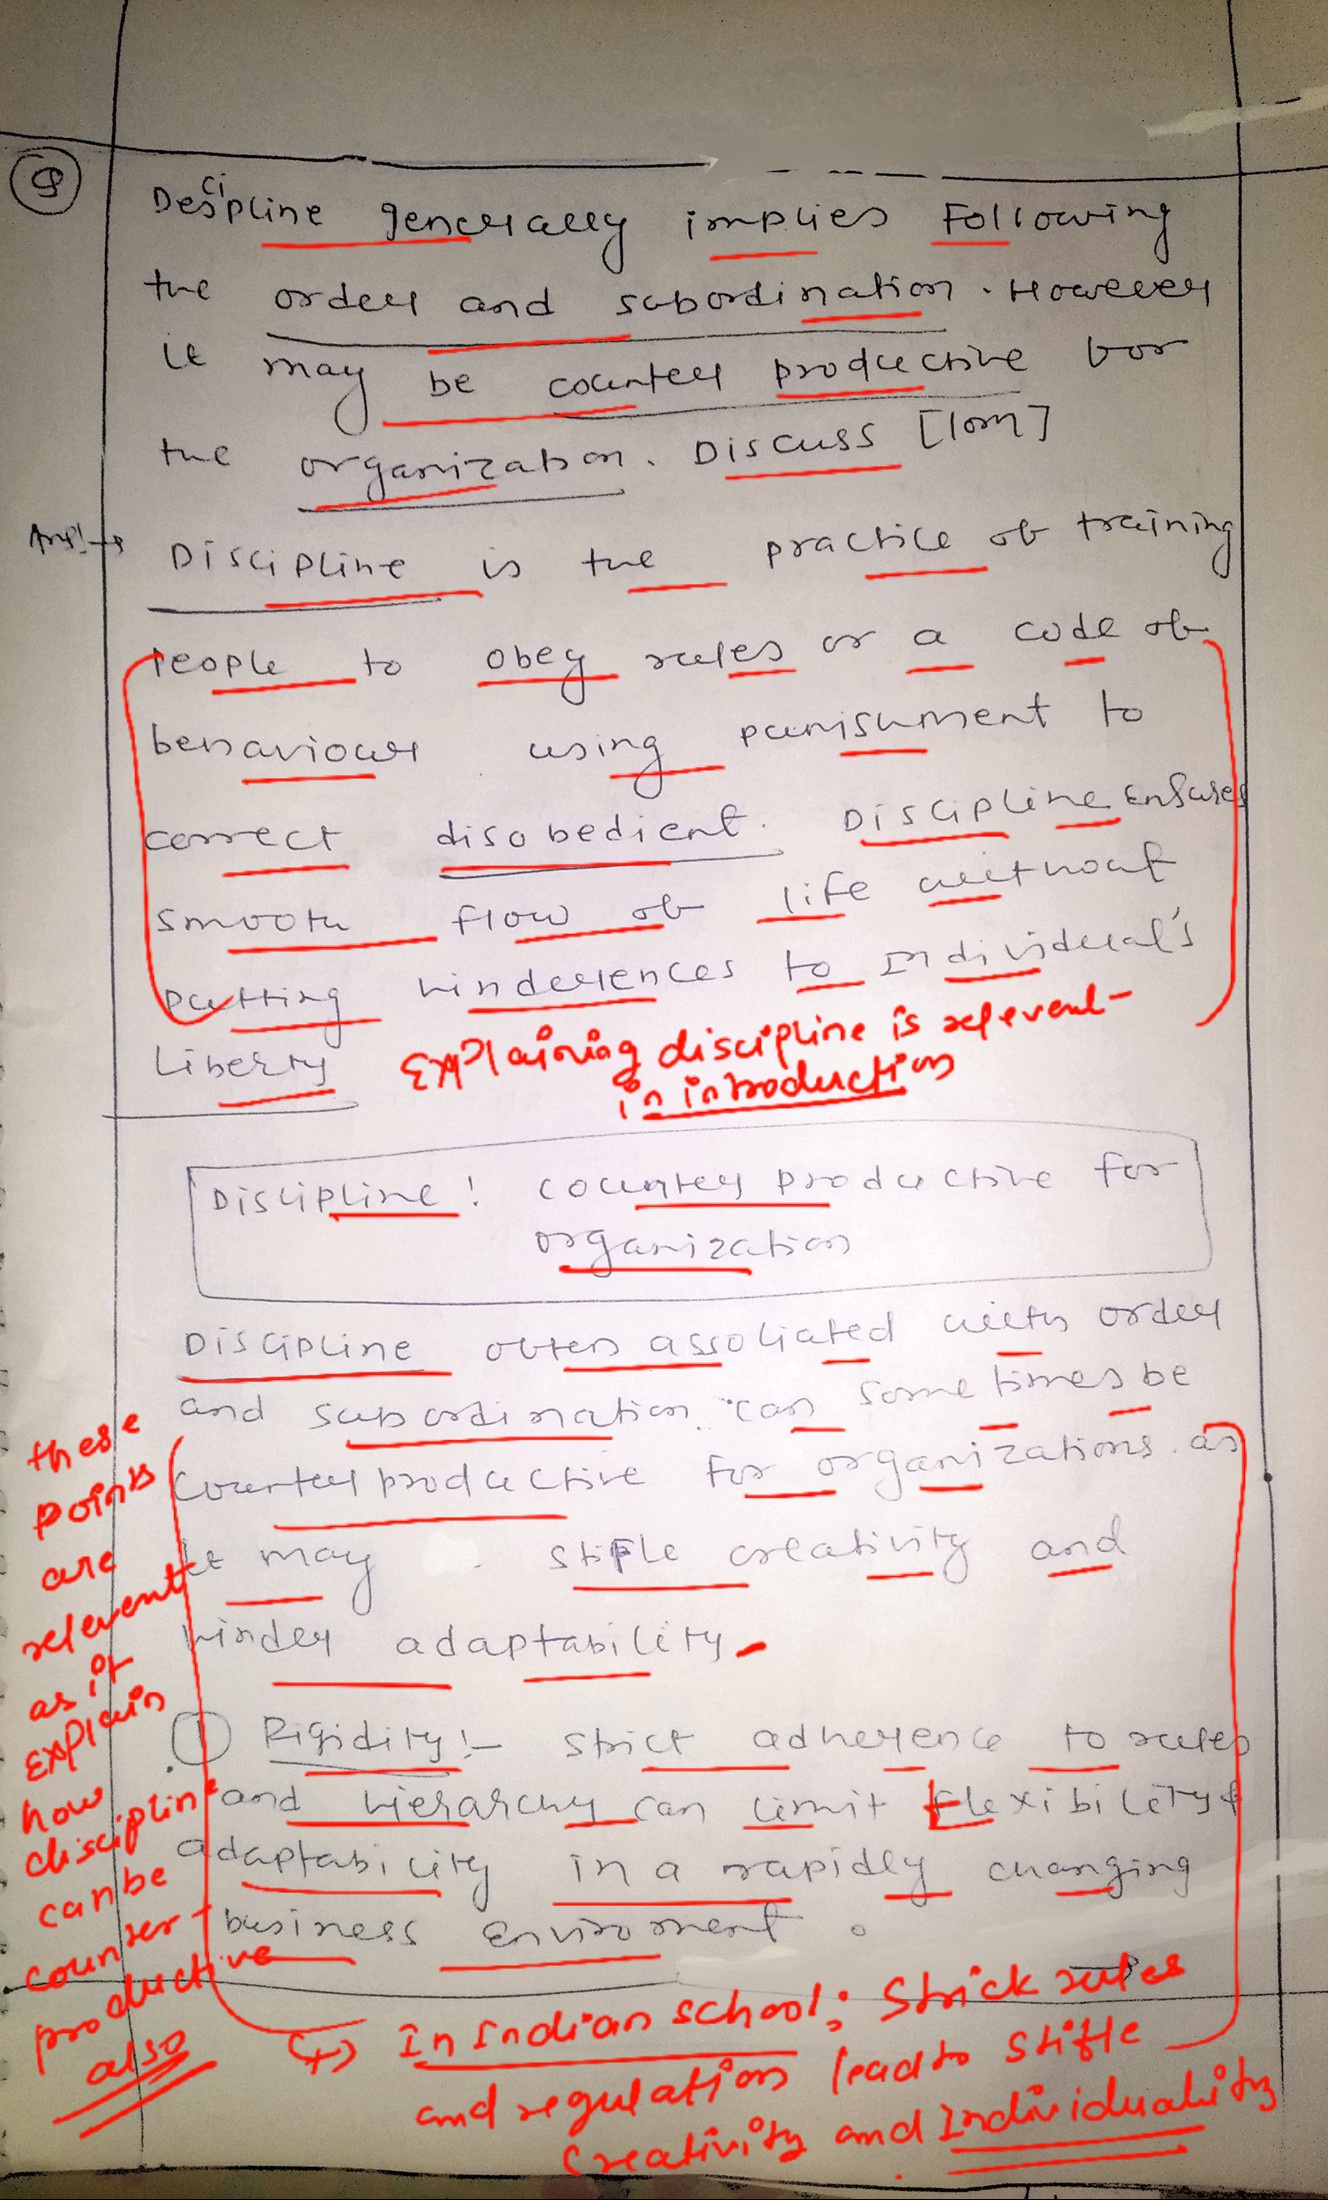 9
Descipline generally implies Following
the order and subordination. However
it may be counter productive for
the organization. Discuss [10m]
Ans:→ Discipline is the practice of training
people to obey rules or a code of
behaviour using punishment to
correct disobedient. Discipline Ensures
smooth flow of life without
putting hinderences to Individual's
Liberty
Explaining discipline is relevent
in introduction
Discipline: Counter productive for
organization
Discipline often associated with order
and subordination can sometimes be
Counterproductive for organizations as
it may stifle creativity and
hinder adaptability.
① Rigidity:- strict adherence to rules
and hierarchy can limit Flexibility &
adaptability in a rapidly changing
business Enviroment.
these
points
are
relevent
as it
Explain
how
discipline
can be
counter-
productive
also
↳ In Indian school; Strick rules
and regulation lead to stifle
creativity and Individuality